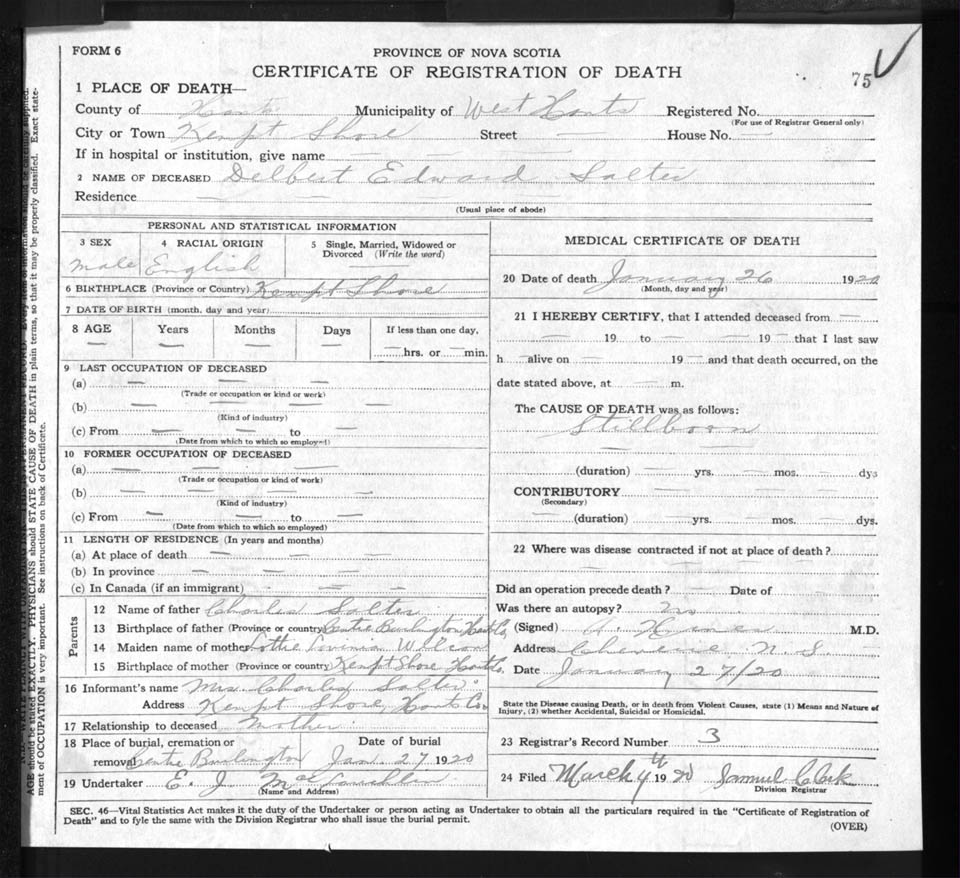 FORM 6
PROVINCE OF NOVA SCOTIA
CERTIFICATE OF REGISTRATION OF DEATH
75
1 PLACE OF DEATH—
County of Hants Municipality of West Hants Registered No.
(For use of Registrar General only)
City or Town Kempt Shore Street — House No. —
If in hospital or institution, give name — — —
2 NAME OF DECEASED Delbert Edward Salter
Residence — — —
(Usual place of abode)
PERSONAL AND STATISTICAL INFORMATION
3 SEX 4 RACIAL ORIGIN 5 Single, Married, Widowed or Divorced (Write the word)
Male English
6 BIRTHPLACE (Province or Country) Kempt Shore
7 DATE OF BIRTH (month, day and year)
8 AGE Years Months Days If less than one day,
— — — — —hrs. or —min.
9 LAST OCCUPATION OF DECEASED
(a) — — —
(Trade or occupation or kind or work)
(b) — — —
(Kind of industry)
(c) From — to —
(Date from which to which so employed)
10 FORMER OCCUPATION OF DECEASED
(a) — — —
(Trade or occupation or kind of work)
(b) — — —
(Kind of industry)
(c) From — to —
(Date from which to which so employed)
11 LENGTH OF RESIDENCE (In years and months)
(a) At place of death — — —
(b) In province — — —
(c) In Canada (if an immigrant) — —
Parents
12 Name of father Charles Salter
13 Birthplace of father (Province or country) Centre Burlington Hants Co
14 Maiden name of mother Lottie Lovinia Wilson
15 Birthplace of mother (Province or country) Kempt Shore Hants Co.
16 Informant's name Mrs. Charles Salter
Address Kempt Shore, Hants Co
17 Relationship to deceased Mother
18 Place of burial, cremation or removal Centre Burlington Date of burial Jan. 27 1920
19 Undertaker E. J. McLoughlin
(Name and Address)
MEDICAL CERTIFICATE OF DEATH
20 Date of death January 26 1920
(Month, day and year)
21 I HEREBY CERTIFY, that I attended deceased from —
— 19 to — — 19 — that I last saw
h — alive on — 19 — and that death occurred, on the
date stated above, at — m.
The CAUSE OF DEATH was as follows:
Stillborn
(duration) — yrs. — mos. — dys
CONTRIBUTORY — — —
(Secondary)
— (duration) — yrs. mos. — dys.
22 Where was disease contracted if not at place of death?
—
Did an operation precede death? — Date of
Was there an autopsy? No
(Signed) M.D.
Address Cheverie N. S.
Date January 27/20
State the Disease causing Death, or in death from Violent Causes, state (1) Means and Nature of
Injury, (2) whether Accidental, Suicidal or Homicidal.
23 Registrar's Record Number 3
24 Filed March 4th 1920 Samuel Clark
Division Registrar
SEC. 46—Vital Statistics Act makes it the duty of the Undertaker or person acting as Undertaker to obtain all the particulars required in the "Certificate of Registration of
Death" and to fyle the same with the Division Registrar who shall issue the burial permit.
(OVER)
AGE should be stated EXACTLY. PHYSICIANS should STATE CAUSE OF DEATH in plain terms, so that it may be properly classified. Exact state-
ment of OCCUPATION is very important. See instructions on back of Certificate.